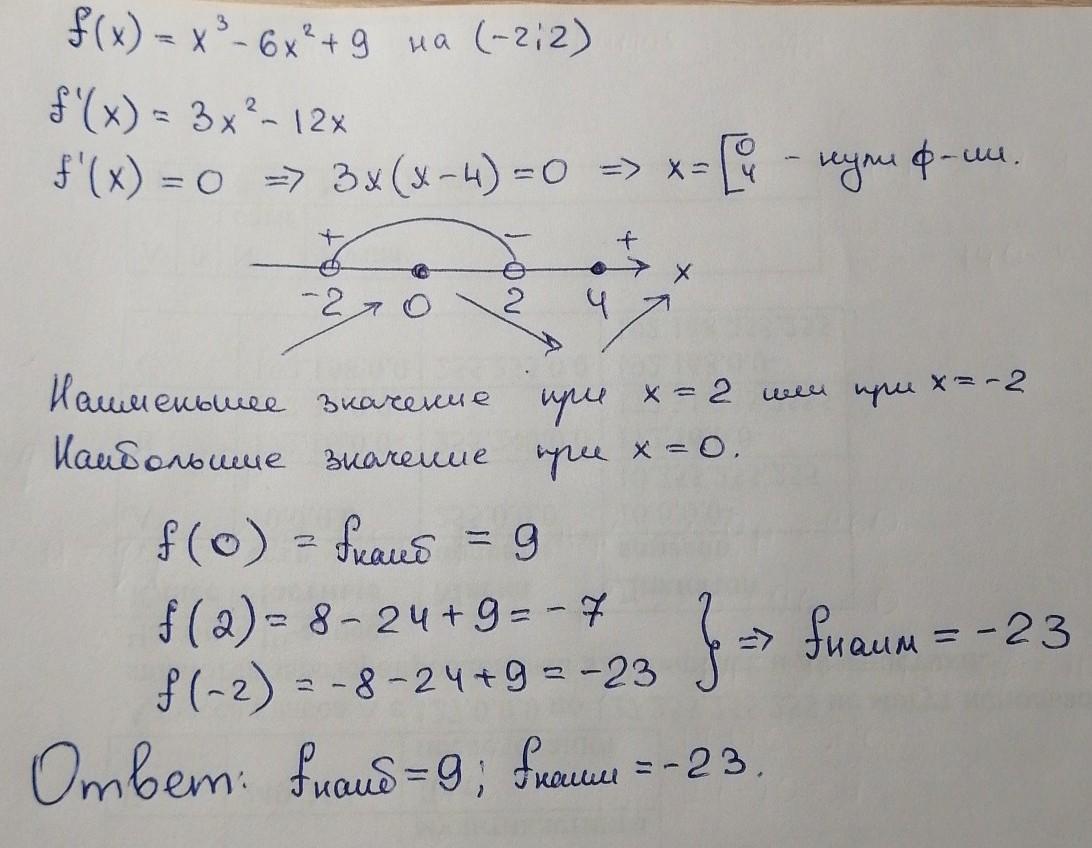 f(x) = x³ - 6x² + 9 на (-2;2)
f'(x) = 3x² - 12x
f'(x) = 0 => 3x(x-4) = 0 => x = [0 4 - нули ф-ии.
+ - +
-2 0 2 4 x
Наименьшее значение при x = 2 или при x = -2
Наибольшие значение при x = 0.
f(0) = fнаиб = 9
f(2) = 8 - 24 + 9 = -7
f(-2) = -8 - 24 + 9 = -23 } => fнаим = -23
Ответ: fнаиб = 9; fнаим = -23.